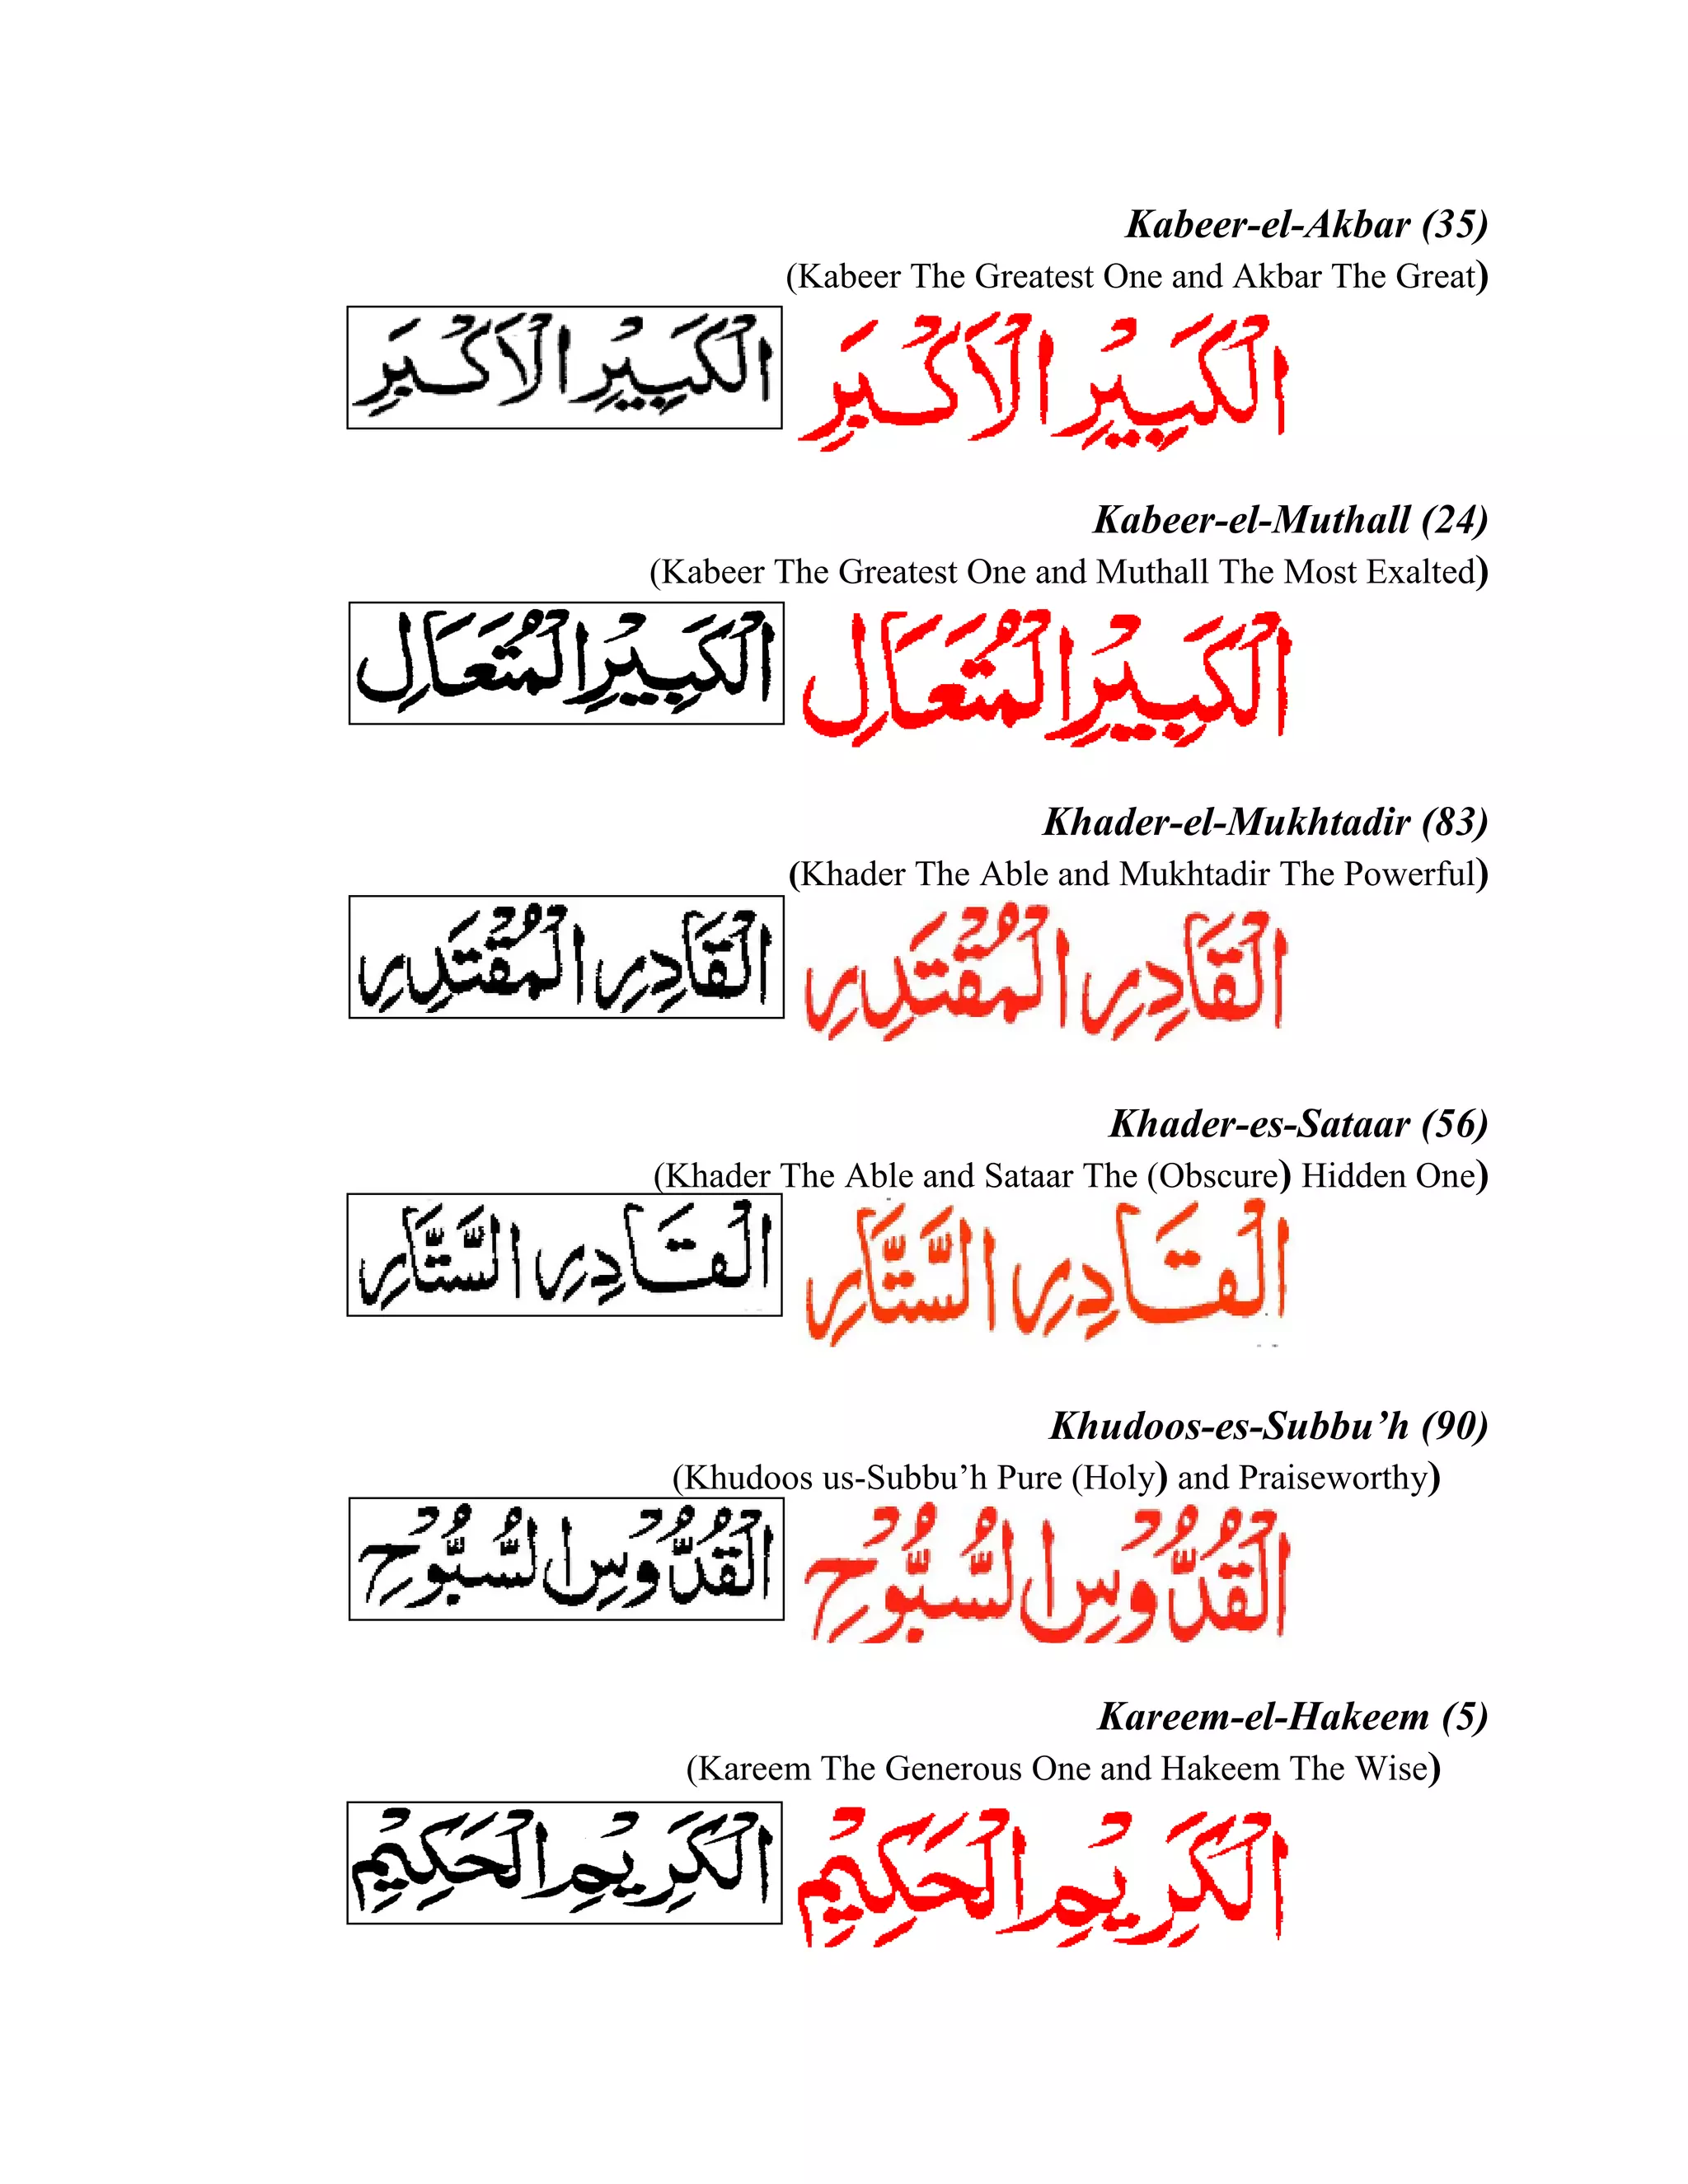 Kabeer-el-Akbar (35)
(Kabeer The Greatest One and Akbar The Great)
الْكَبِيْرِ الْاَكْبَرِ الْكَبِيْرِ الْاَكْبَرِ
Kabeer-el-Muthall (24)
(Kabeer The Greatest One and Muthall The Most Exalted)
الْكَبِيْرِ الْمُتَعَالِ الْكَبِيْرِ الْمُتَعَالِ
Khader-el-Mukhtadir (83)
(Khader The Able and Mukhtadir The Powerful)
الْقَادِرِ الْمُقْتَدِرِ الْقَادِرِ الْمُقْتَدِرِ
Khader-es-Sataar (56)
(Khader The Able and Sataar The (Obscure) Hidden One)
الْقَادِرِ السَّتَّارِ الْقَادِرِ السَّتَّارِ
Khudoos-es-Subbu’h (90)
(Khudoos us-Subbu’h Pure (Holy) and Praiseworthy)
الْقُدُّوْسِ السُّبُّوْحِ الْقُدُّوْسِ السُّبُّوْحِ
Kareem-el-Hakeem (5)
(Kareem The Generous One and Hakeem The Wise)
الْكَرِيْمِ الْحَكِيْمِ الْكَرِيْمِ الْحَكِيْمِ